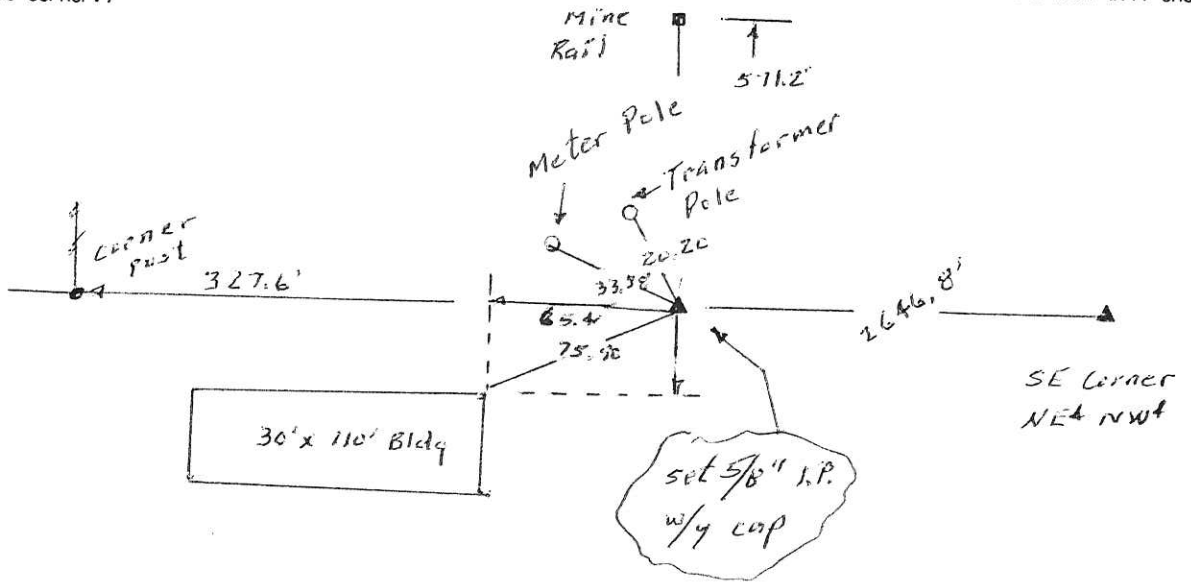 Mine
Rail
571.2'
Meter Pole
Transformer
Pole
Corner
post
327.6'
20.20
33.58
65.4
75.90
2646.8'
SE Corner
NE4 NW4
30' x 110' Bldg
set 5/8" I.P.
w/y cap